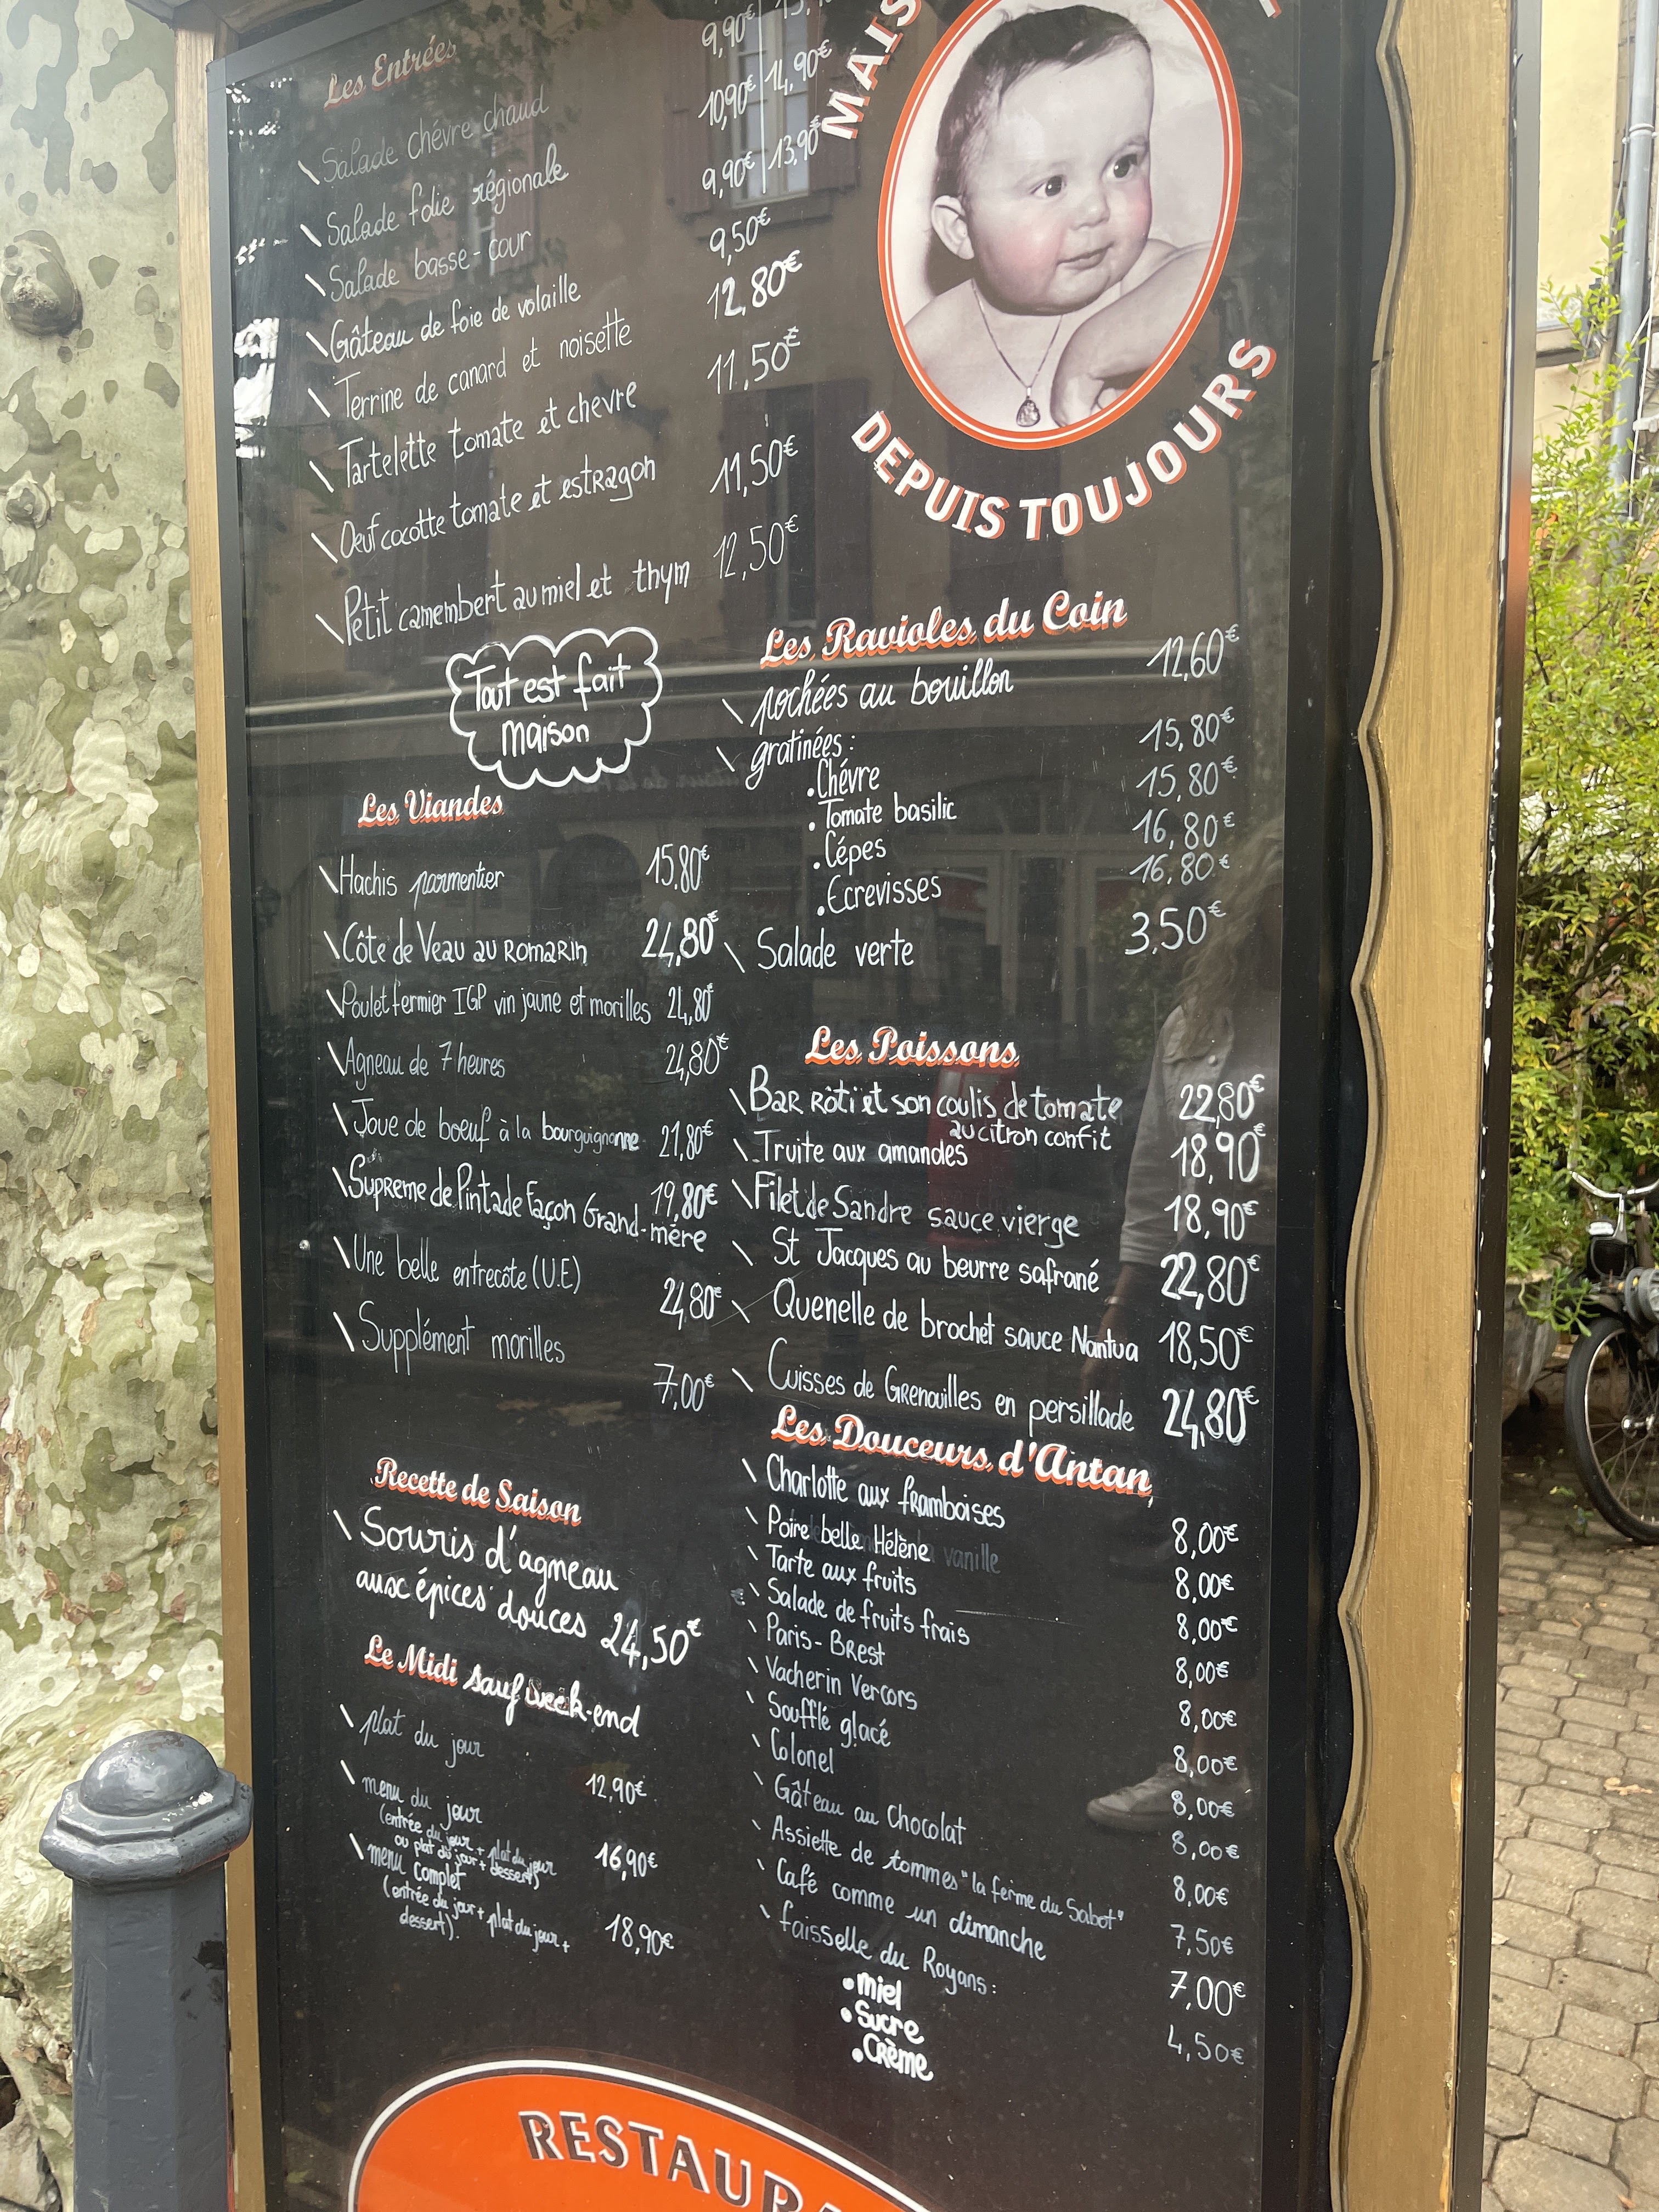 Les Entrées
9,90€
\ Salade chévre chaud 10,90€ 14,90€
\ Salade folie régionale 9,90€ 13,90€
\ Salade basse-cour 9,50€
\ Gâteau de foie de volaille 12,80€
\ Terrine de canard et noisette 11.50€
\ Tartelette tomate et chevre 11,50€
\ Oeuf cocotte tomate et estragon 12,50€
\ Petit camembert au miel et thym
Tout est fait
maison
MAIS
DEPUIS TOUJOURS
Les Viandes
\ Hachis parmentier 15.80€
\ Côte de Veau au Romarin 24,80€
\ Poulet fermier IGP vin jaune et morilles 24,80€
\ Agneau de 7 heures 24,80€
\ Joue de boeuf à la bourguignonne 21,80€
\ Supreme de Pintade façon Grand-mère 19,80€
\ Une belle entrecôte (U.E) 24,80€
\ Supplément morilles 7,00€
Recette de Saison
\ Souris d'agneau
aux épices douces 24,50€
Le Midi sauf week-end
\ plat du jour 12,90€
\ menu du jour 16,90€
(entrée du jour + plat du jour
ou plat du jour + dessert)
\ menu complet 18,90€
(entrée du jour + plat du jour +
dessert).
Les Ravioles du Coin
\ pochées au bouillon 12,60€
\ gratinées :
. Chévre 15,80€
. Tomate basilic 15,80€
. Cépes 16,80€
. Ecrevisses 16,80€
\ Salade verte 3,50€
Les Poissons
\ Bar rôti et son coulis de tomate 22,80€
au citron confit
\ Truite aux amandes 18,90€
\ Filet de Sandre sauce vierge 18,90€
\ St Jacques au beurre safrané 22,80€
\ Quenelle de brochet sauce Nantua 18,50€
\ Cuisses de Grenouilles en persillade 24,80€
Les Douceurs d'Antan
\ Charlotte aux framboises 8,00€
\ Poire belle Hélène vanille 8,00€
\ Tarte aux fruits 8,00€
\ Salade de fruits frais 8,00€
\ Paris-Brest 8,00€
\ Vacherin Vercors 8,00€
\ Soufflé glacé 8,00€
\ Colonel 8,00€
\ Gâteau au Chocolat 8,00€
\ Assiette de tommes "la ferme du Sabot" 7,50€
\ Café comme un dimanche 7,00€
\ faisselle du Royans : 4,50€
• Miel
• Sucre
• Crème
RESTAURA